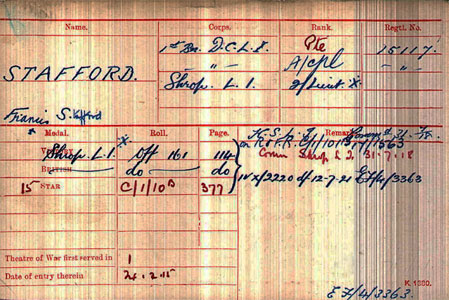 Name. Corps. Rank. Regtl. No.
1st Bn. D.C.L.I. Pte 15117.
STAFFORD. — " — A/Cpl — " —
Shrop. L. I. 2/Lieut. X.
Francis
Medal. Roll. Page.
Shrop. L. I. X Off 161 114
BRITISH do do
15 STAR C/1/10B 377
Comm Shrop L I. 31.7.18
IV X/2220 d/ 12-7-21 E7/4/3363
Theatre of War first served in 1
Date of entry therein 2.15
K 1380.
E 7/4/3363.